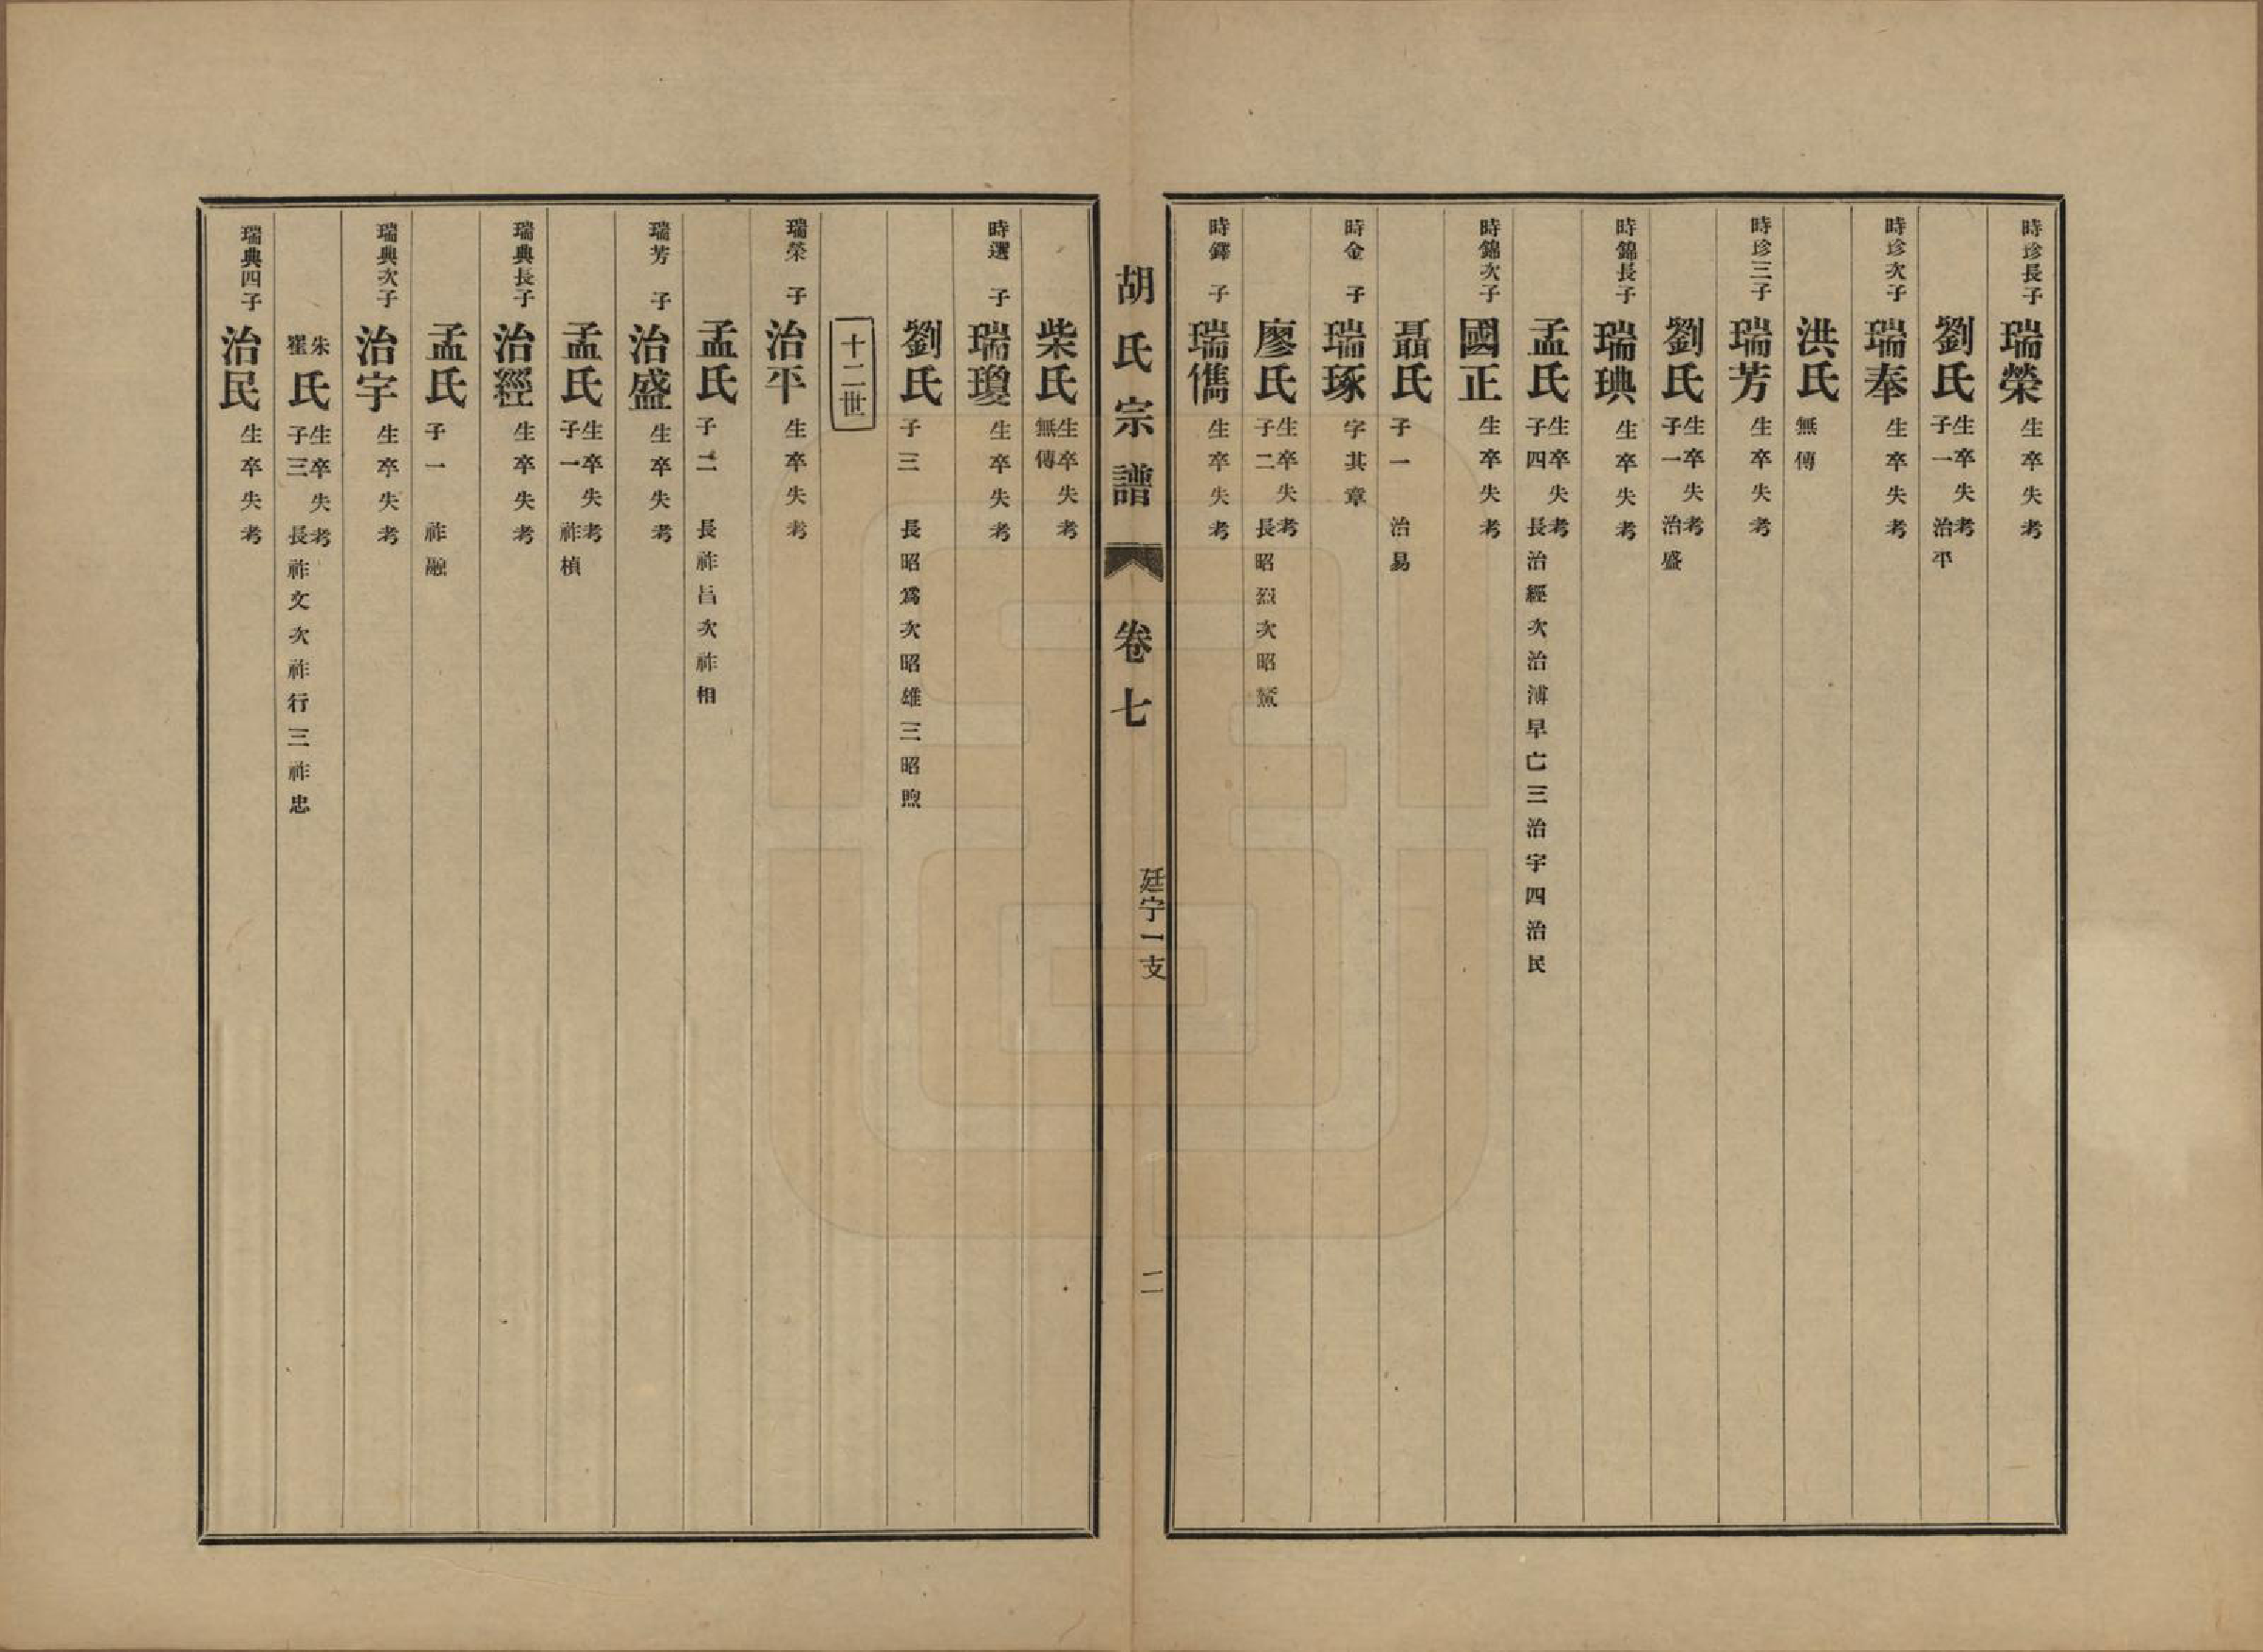 時珍長子 瑞榮 生卒失考
劉氏 生卒失考 子一 治平
時珍次子 瑞奉 生卒失考
洪氏 無傳
時珍三子 瑞芳 生卒失考
劉氏 生卒失考 子一 治盛
時錦長子 瑞琠 生卒失考
孟氏 生卒失考 子四 長治經次治溥早亡三治宇四治民
時錦次子 國正 生卒失考
聶氏 子一 治易
時金子 瑞琢 字其章
廖氏 生卒失考 子二 長昭烈次昭黨
時鐸子 瑞儁 生卒失考
胡氏宗譜 卷七 廷宁一支 二
柴氏 生卒失考 無傳
時選子 瑞瓊 生卒失考
劉氏 子三 長昭爲次昭雄三昭煦
十二世
瑞榮子 治平 生卒失考
孟氏 子二 長祚昌次祚相
瑞芳子 治盛 生卒失考
孟氏 生卒失考 子一 祚楨
瑞典長子 治經 生卒失考
孟氏 子一 祚融
瑞典次子 治宇 生卒失考
朱翟氏 生卒失考 子三 長祚文次祚行三祚忠
瑞典四子 治民 生卒失考